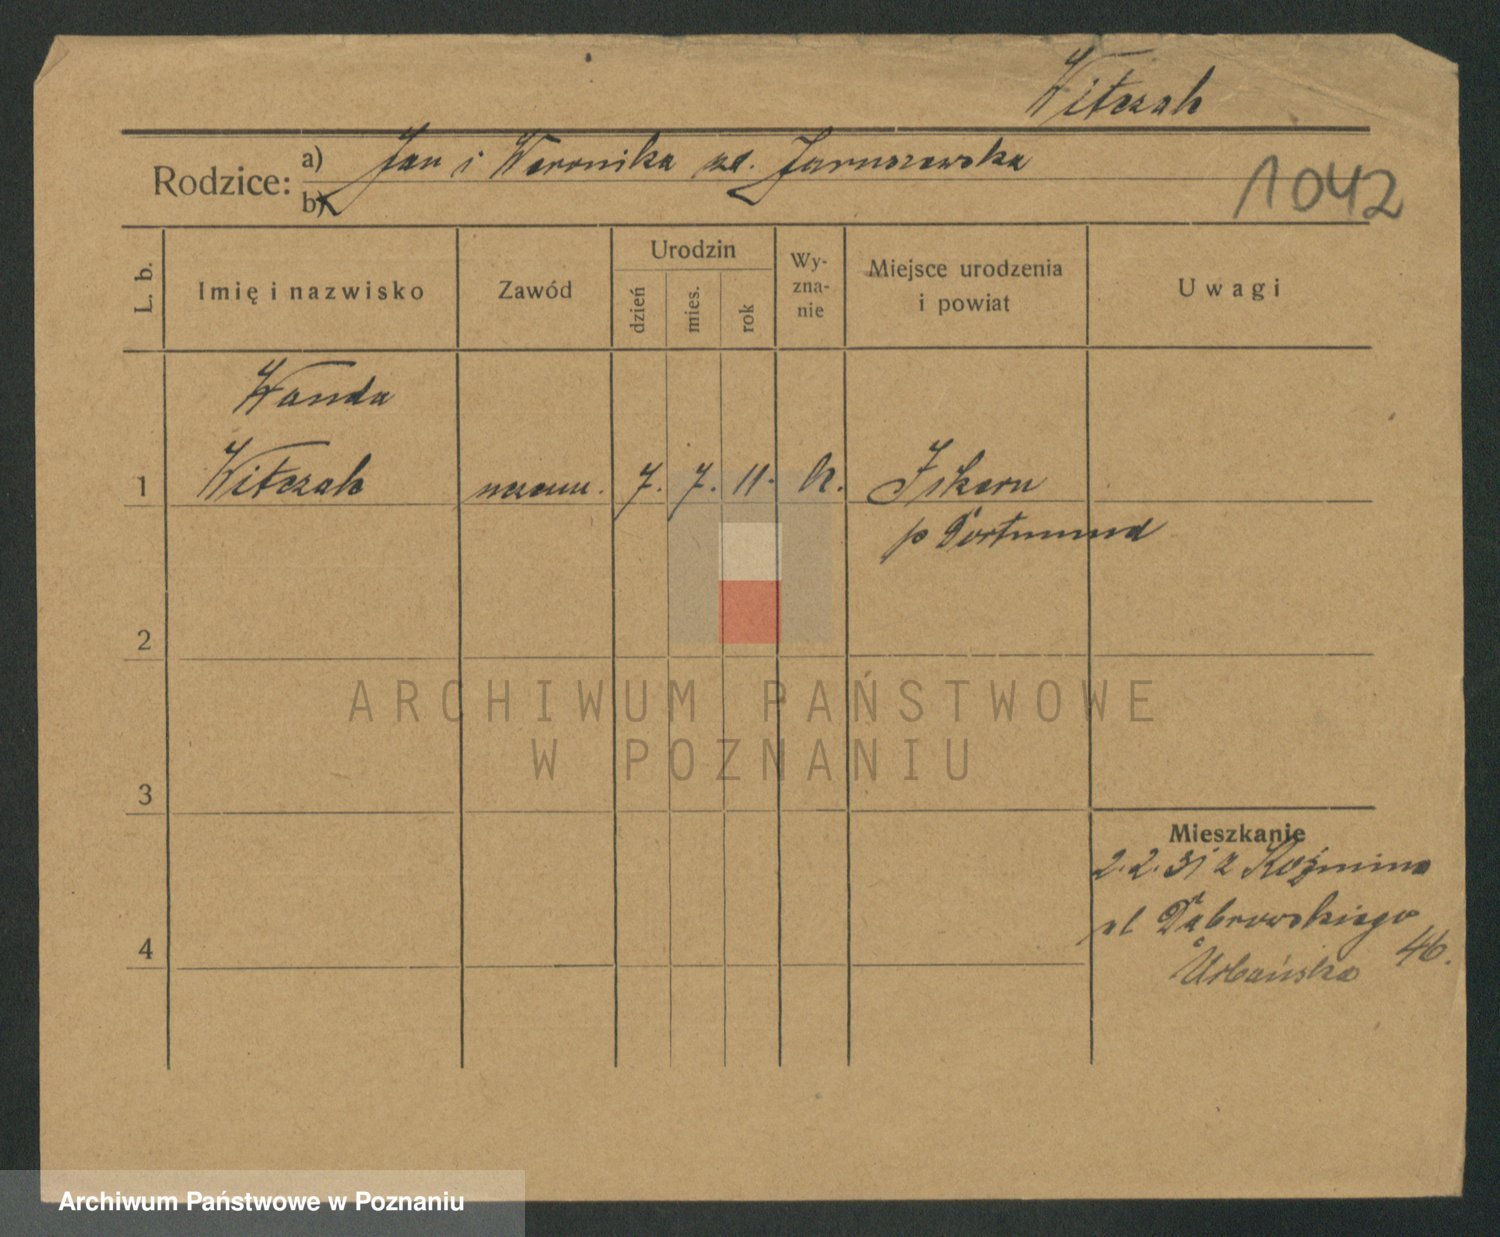 Witczak
Rodzice: a) Jan i Weronika zd. Jaruszewska
b)
1042
L. b. Imię i nazwisko Zawód Urodzin dzień mies. rok Wy-zna-nie Miejsce urodzenia i powiat Uwagi
Wanda
1 Witczak 7. 7. 11. k. Ikern
p Dortmund
2
ARCHIWUM PAŃSTWOWE
W POZNANIU
3
Mieszkanie
2.2.31 z Koźmina
ul Dąbrowskiego 46.
4
Urbańska
Archiwum Państwowe w Poznaniu